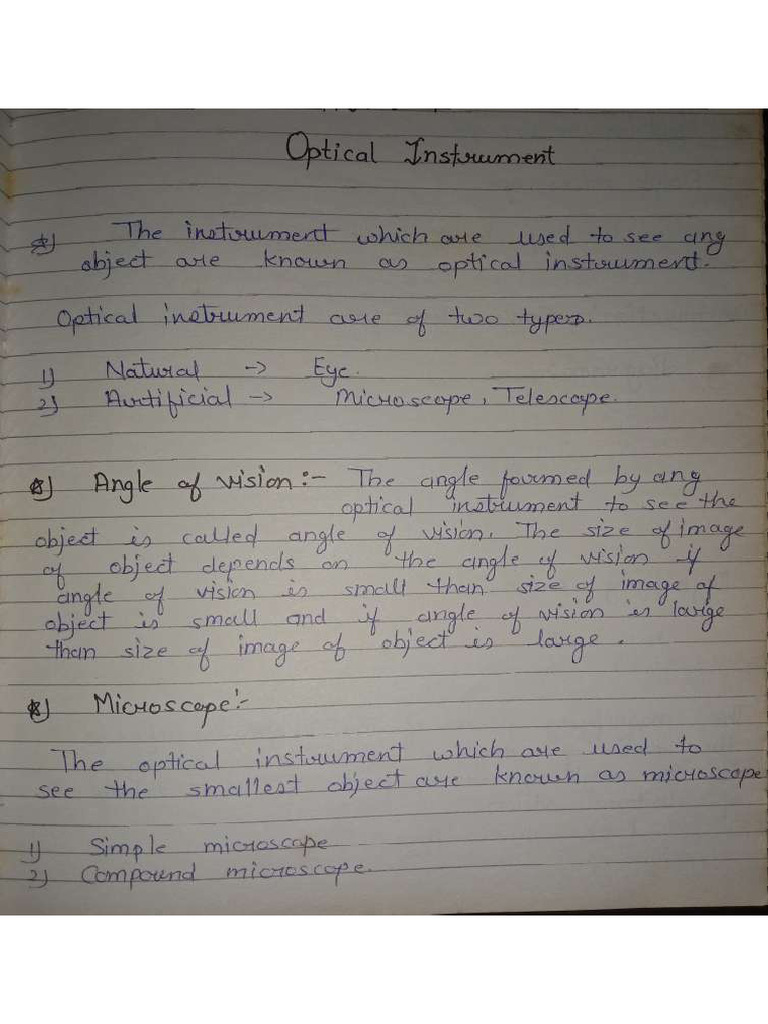 Optical Instrument
*) The instrument which are used to see any
object are known as optical instrument.
Optical instrument are of two types.
1) Natural -> Eye.
2) Artificial -> Microscope, Telescope.
*) Angle of vision:- The angle formed by any
optical instrument to see the
object is called angle of vision. The size of image
of object depends on the angle of vision if
angle of vision is small than size of image of
object is small and if angle of vision is large
than size of image of object is large.
*) Microscope:-
The optical instrument which are used to
see the smallest object are known as microscope
1) Simple microscope
2) Compound microscope.